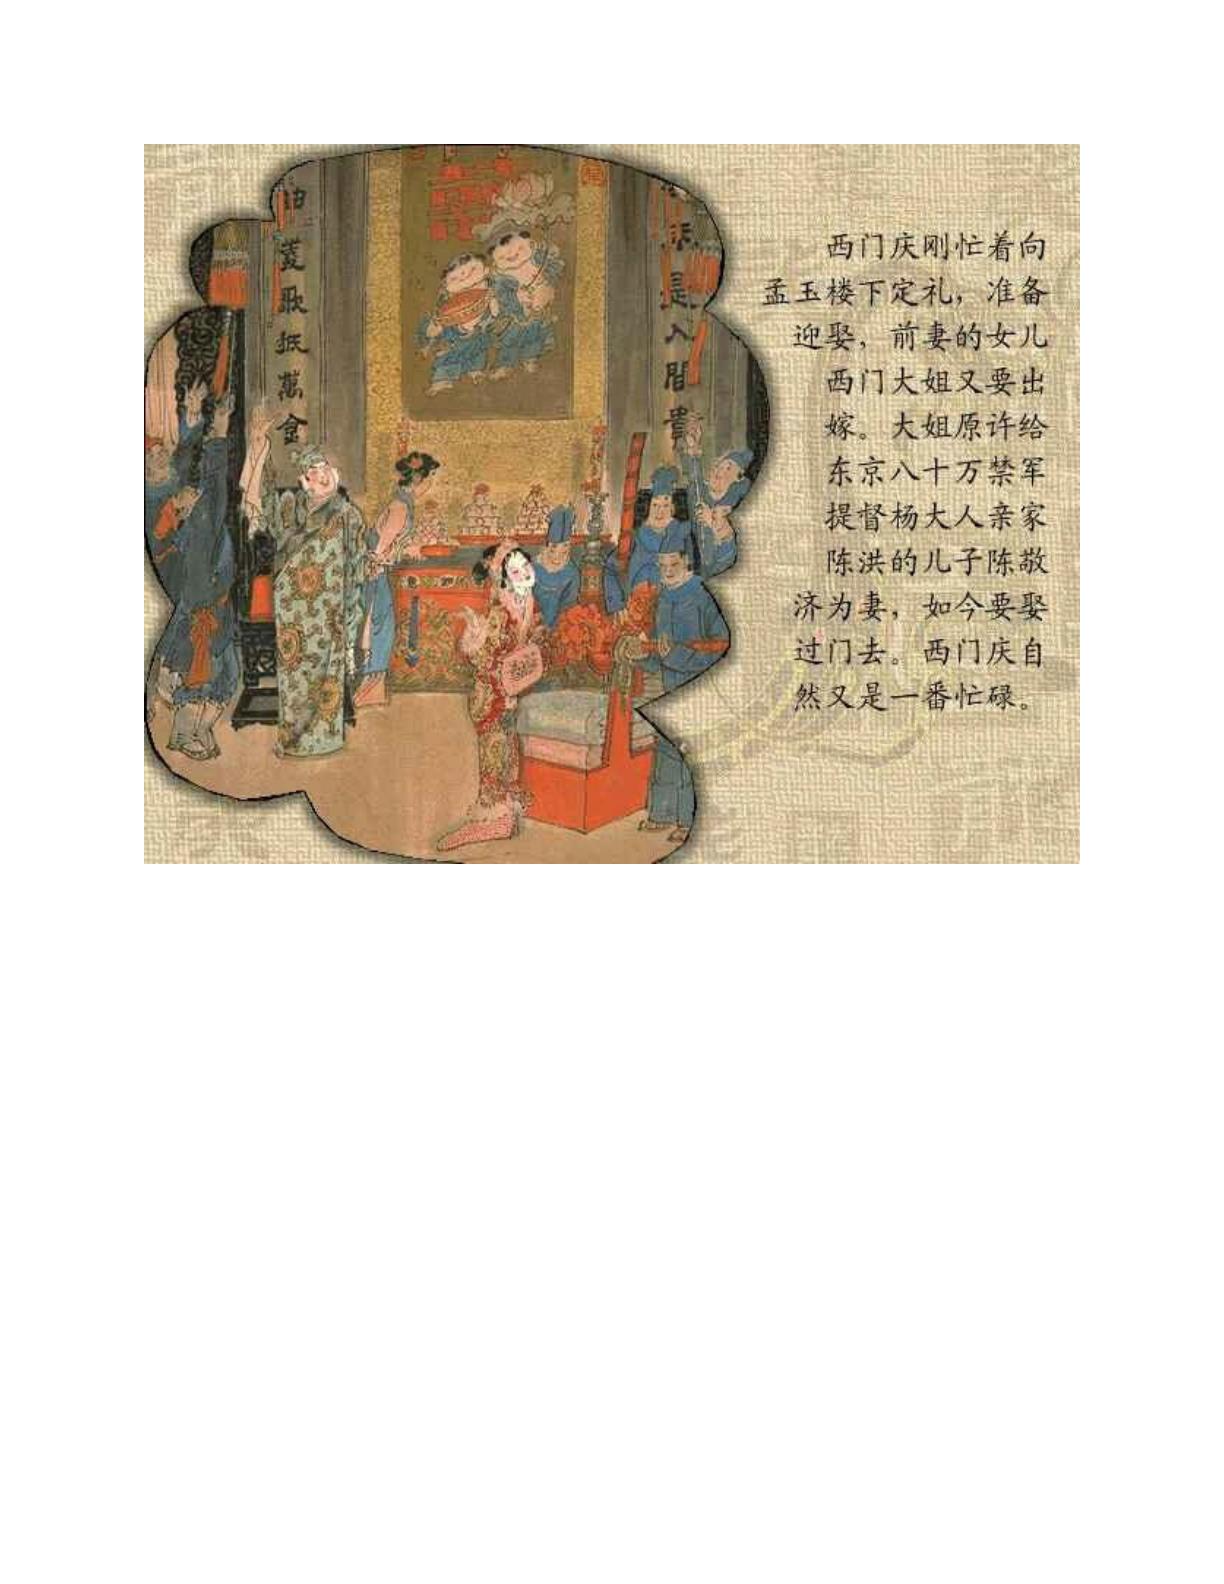 西门庆刚忙着向
孟玉楼下定礼，准备
迎娶，前妻的女儿
西门大姐又要出
嫁。大姐原许给
东京八十万禁军
提督杨大人亲家
陈洪的儿子陈敬
济为妻，如今要娶
过门去。西门庆自
然又是一番忙碌。
菱歌抵萬金
是人間貴